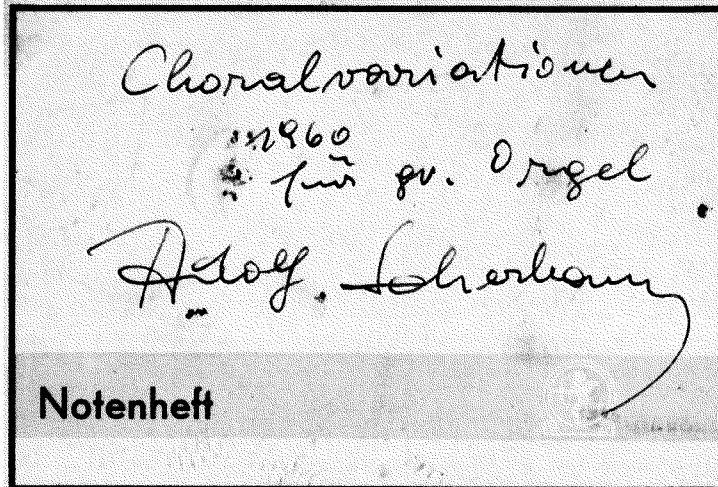 Choralvariationen
1960
für gr. Orgel
Adolf Scherbaum
Notenheft